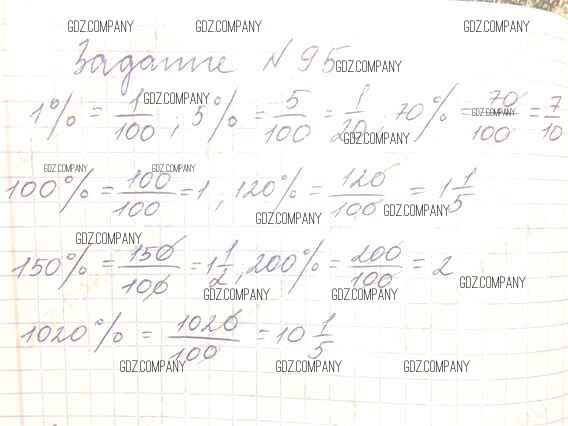 GDZ.COMPANY GDZ.COMPANY GDZ.COMPANY
Задание N 95
GDZ.COMPANY
1% = 1/100 ; 5% = 5/100 = 1/20 , 70% = 70/100 = 7/10
GDZ.COMPANY GDZ.COMPANY
GDZ.COMPANY
GDZ.COMPANY GDZ.COMPANY
100% = 100/100 = 1 , 120% = 120/100 = 1 1/5
GDZ.COMPANY GDZ.COMPANY
GDZ.COMPANY
150% = 150/100 = 1 1/2 , 200% = 200/100 = 2
GDZ.COMPANY GDZ.COMPANY GDZ.COMPANY
1020% = 1020/100 = 10 1/5
GDZ.COMPANY GDZ.COMPANY GDZ.COMPANY